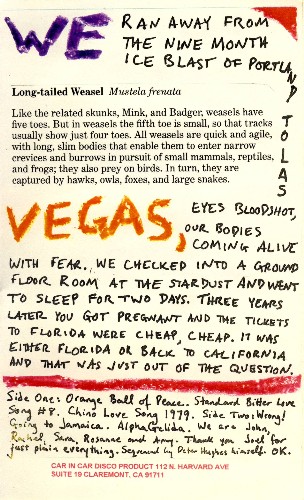 WE RAN AWAY FROM
THE NINE MONTH
ICE BLAST OF PORTLAND TO LAS
Long-tailed Weasel Mustela frenata
Like the related skunks, Mink, and Badger, weasels have
five toes. But in weasels the fifth toe is small, so that tracks
usually show just four toes. All weasels are quick and agile,
with long, slim bodies that enable them to enter narrow
crevices and burrows in pursuit of small mammals, reptiles,
and frogs; they also prey on birds. In turn, they are
captured by hawks, owls, foxes, and large snakes.
VEGAS, EYES BLOODSHOT,
OUR BODIES
COMING ALIVE
WITH FEAR. WE CHECKED INTO A GROUND
FLOOR ROOM AT THE STARDUST AND WENT
TO SLEEP FOR TWO DAYS. THREE YEARS
LATER YOU GOT PREGNANT AND THE TICKETS
TO FLORIDA WERE CHEAP, CHEAP. IT WAS
EITHER FLORIDA OR BACK TO CALIFORNIA
AND THAT WAS JUST OUT OF THE QUESTION.
Side One: Orange Ball of Peace. Standard Bitter Love
Song #8. Chino Love Song 1979. Side Two: Wrong!
Going to Jamaica. Alpha Gelida. We are John,
Rachel, Sara, Rosanne and Amy. Thank you Joel for
just plain everything. Seground by Peter Hughes himself. OK.
CAR IN CAR DISCO PRODUCT 112 N. HARVARD AVE
SUITE 19 CLAREMONT, CA 91711